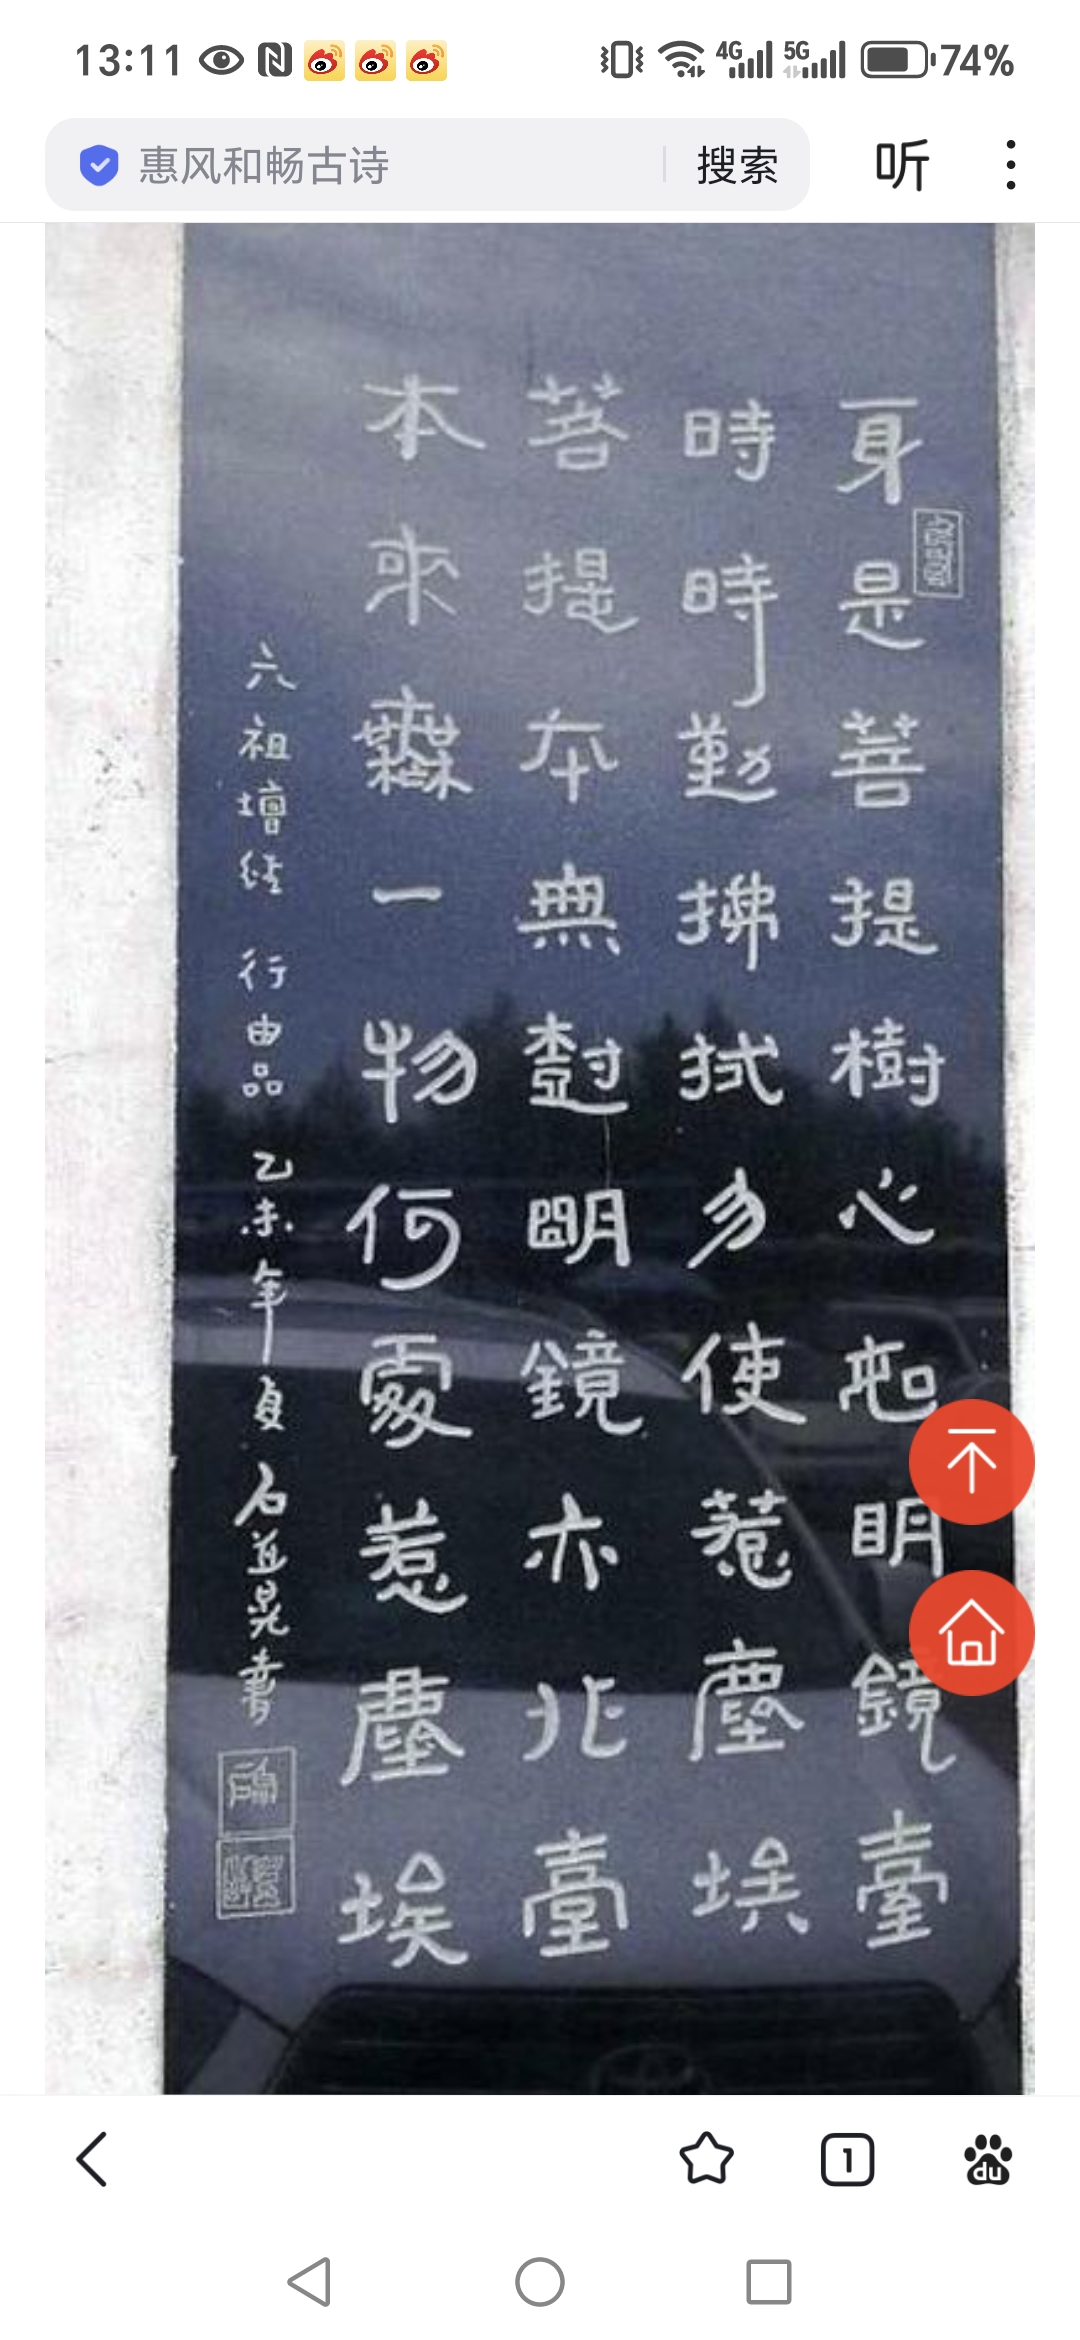 13:11
4G
5G
74%
惠风和畅古诗
搜索
听
身是菩提樹心如明鏡臺
時時勤拂拭勿使惹塵埃
菩提本無樹明鏡亦非臺
本來無一物何處惹塵埃
六祖壇經 行由品 乙未年 貞石並晃書
1
du